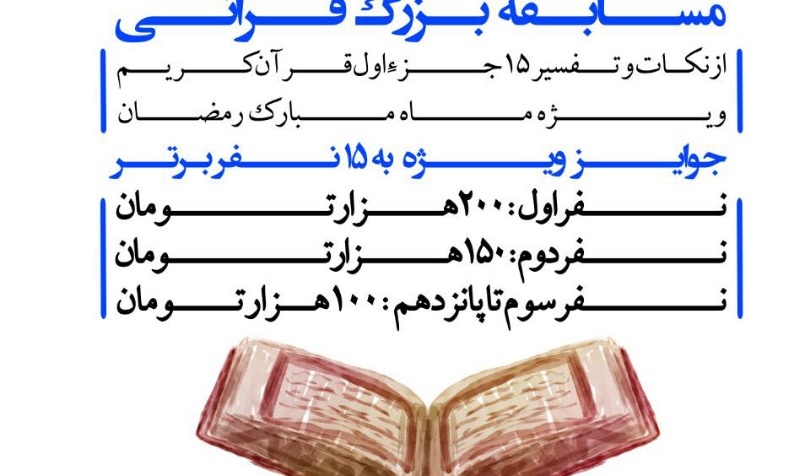 مسابقه بزرگ قرآنی
از نکات و تفسیر ۱۵ جزء اول قرآن کریم
ویژه ماه مبارک رمضان
جوایز ویژه به ۱۵ نفر برتر
نفر اول: ۲۰۰ هزار تومان
نفر دوم: ۱۵۰ هزار تومان
نفر سوم تا پانزدهم: ۱۰۰ هزار تومان